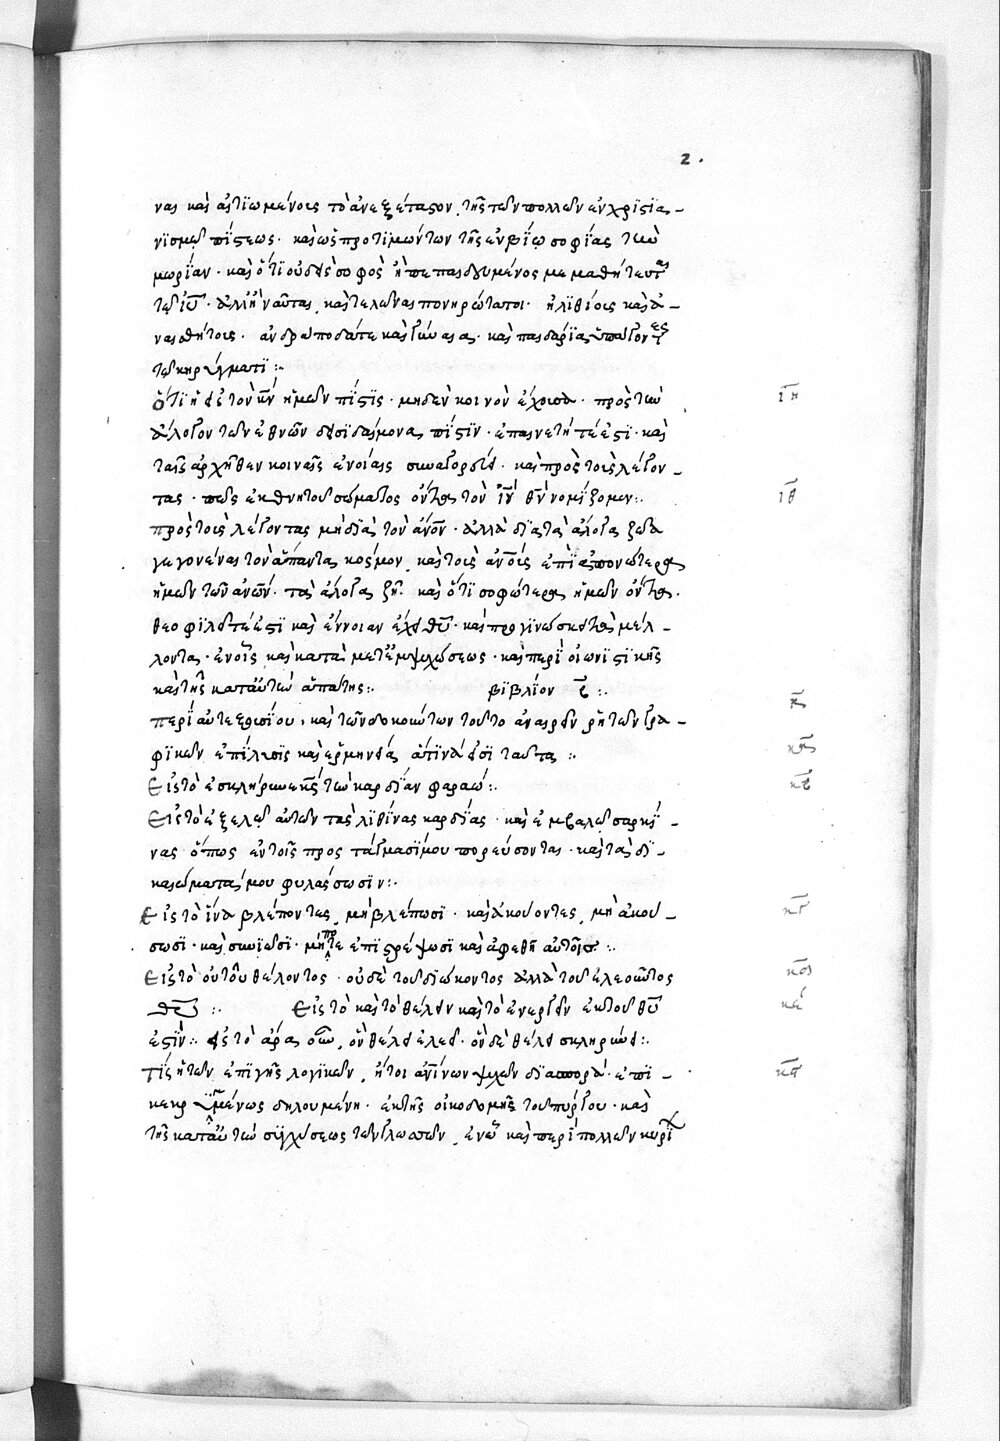 2.
νας καὶ αἰτιωμένους τὸ ἀνεξέταστον, τῆς τῶν πολλῶν ἐν χριστια-
νισμῷ πίστεως· καὶ ὡς προτιμώντων τῆς ἐν βίῳ σοφίας τὴν
μωρίαν· καὶ ὅτι οὐδεὶς σοφὸς ἢ πεπαιδευμένος μεμαθήτευται
τῷ ἰυ̅· ἀλλ' ἢ ναῦται, καὶ τελῶναι πονηρότατοι· ἠλιθίοις καὶ ἀ-
ναισθήτοις· ἀνδραπόδά τε καὶ γύναια· καὶ παιδάρια ὑπάγοντες
τῷ κηρύγματι :~
ὅτι ἡ εἰς τὸν κ̅ν̅ ἡμῶν πίστις· μηδὲν κοινὸν ἔχουσα· πρὸς τὴν ιη
ἄλογον τῶν ἐθνῶν δεισιδαίμονα πίστιν· ἐπαινετή τέ ἐστι· καὶ
ταῖς ἀρχῆθεν κοιναῖς ἐννοίαις συναγορεύει· καὶ πρὸς τοὺς λέγον-
τας· πῶς ἐκ θνητοῦ σώματος ὄντα τὸν ἰ̅ν̅ θ̅ν̅ νομίζομεν :· ιθ
πρὸς τοὺς λέγοντας μὴ διὰ τὸν ἀν̅ο̅ν̅· ἀλλὰ διὰ τὰ ἄλογα ζῶα
γεγονέναι τὸν ἅπαντα κόσμον, καὶ τοὺς ἀν̅ο̅υ̅ς ἐπιπονώτερον
ἡμῶν τῶν ἀν̅ω̅ν̅· τὰ ἄλογα ζῆν· καὶ ὅτι σοφώτερα ἡμῶν ὄντα·
θεοφιλῆ τέ ἐστι καὶ ἔννοιαν ἔχει θ̅υ̅· καὶ προγινώσκει τὰ μέλ-
λοντα· ἐν οἷς καὶ κατὰ μετεμψυχώσεως· καὶ περὶ οἰωνιστικῆς
καὶ τῆς κατ' αὐτὴν ἀπάτης :· βιβλίον :·
περὶ αὐτεξουσίου, καὶ τῶν δοκούντων τοῦτο ἀναιρεῖν ῥητῶν γρα- κ
φικῶν ἐπίλυσις καὶ ἑρμηνεία ἅτινά εἰσι ταῦτα :· κα
Εἰς τὸ ἐσκλήρυνε κ̅ς̅ τὴν καρδίαν φαραώ :· κβ
Εἰς τὸ ἐξελῶ αὐτῶν τὰς λιθίνας καρδίας· καὶ ἐμβαλῶ σαρκί-
νας ὅπως ἐν τοῖς προστάγμασί μου πορεύσονται· καὶ τὰ δι-
καιώματά μου φυλάσσωσιν :·
Εἰς τὸ ἵνα βλέποντες, μὴ βλέπωσι· καὶ ἀκούοντες, μὴ ἀκού- κγ
σωσι· καὶ συνιῶσι· μήποτε ἐπιστρέψωσι καὶ ἀφεθῇ αὐτοῖς :·
Εἰς τὸ οὐ τοῦ θέλοντος· οὐδὲ τοῦ διώκοντος ἀλλὰ τοῦ ἐλεοῦντος κδ
θ̅υ̅ :· Εἰς τὸ καὶ τὸ θέλειν καὶ τὸ ἐνεργεῖν ἐκ τοῦ θ̅υ̅ κε
ἐστιν :· εἰς τὸ ἄρα οὖν, ὃν θέλει ἐλεεῖ· ὃν δὲ θέλει σκληρύνει :·
Τίς ἡ τῶν ἐπὶ γῆς λογικῶν, ἤτοι ἀν̅ί̅νων ψυχῶν διαφορά· ἐπι- κς
κεκρυμμένως δηλουμένη· ἐκ τῆς οἰκοδομῆς τοῦ πύργου· καὶ
τῆς κατ' αὐτὴν συγχύσεως τῶν γλωσσῶν, ἐν ᾧ καὶ περὶ πολλῶν κυρί